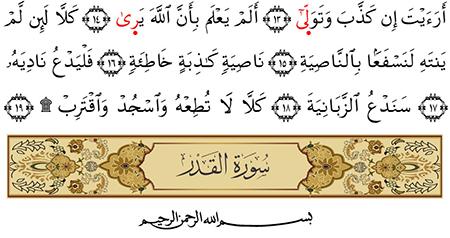 أَرَءَيْتَ إِن كَذَّبَ وَتَوَلَّىٰٓ ﴿١٣﴾ أَلَمْ يَعْلَم بِأَنَّ اللَّهَ يَرىٰ ﴿١٤﴾ كَلَّا لَئِن لَّمْ
يَنتَهِ لَنَسْفَعًۢا بِالنَّاصِيَةِ ﴿١٥﴾ نَاصِيَةٍ كَـٰذِبَةٍ خَاطِئَةٍ ﴿١٦﴾ فَلْيَدْعُ نَادِيَهُۥ
﴿١٧﴾ سَنَدْعُ الزَّبَانِيَةَ ﴿١٨﴾ كَلَّا لَا تُطِعْهُ وَاسْجُدْ وَاقْتَرِبْ ۩ ﴿١٩﴾
سُورَةُ القَدْرِ
بسم الله الرحمن الرحيم